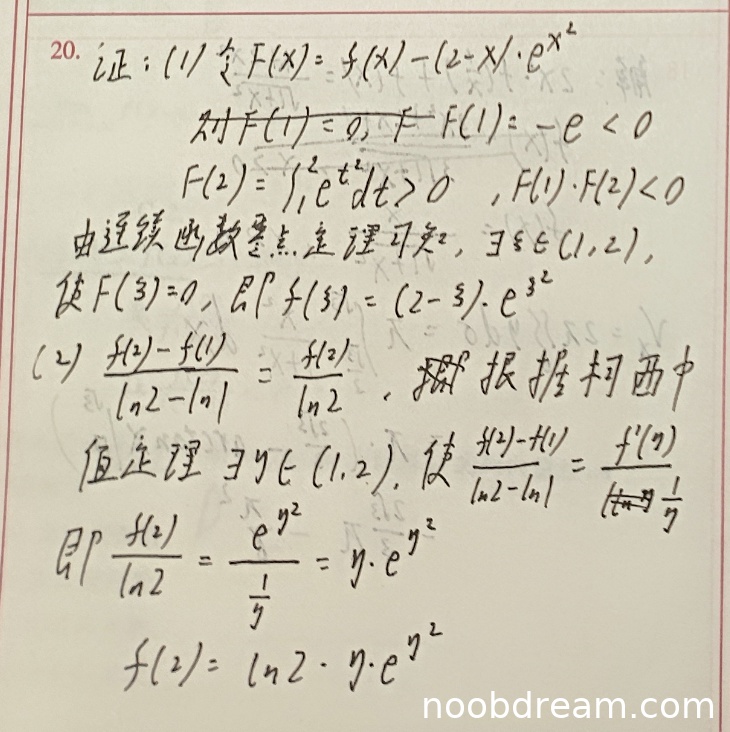 20. 证：(1) 令 F(x) = f(x) - (2-x)·e^{x^2}
对 F(1) = 0, F F(1) = -e < 0
F(2) = ∫_1^2 e^{t^2}dt > 0 , F(1)·F(2) < 0
由连续函数零点定理可知, ∃ξ∈(1,2),
使F(ξ)=0, 即 f(ξ) = (2-ξ)·e^{ξ^2}
(2) \frac{f(2)-f(1)}{ln2-ln1} = \frac{f(2)}{ln2} , 根据柯西中
值定理 ∃η∈(1,2), 使 \frac{f(2)-f(1)}{ln2-ln1} = \frac{f'(η)}{\frac{1}{η}}
即 \frac{f(2)}{ln2} = \frac{e^{η^2}}{\frac{1}{η}} = η·e^{η^2}
f(2) = ln2·η·e^{η^2}
noobdream.com